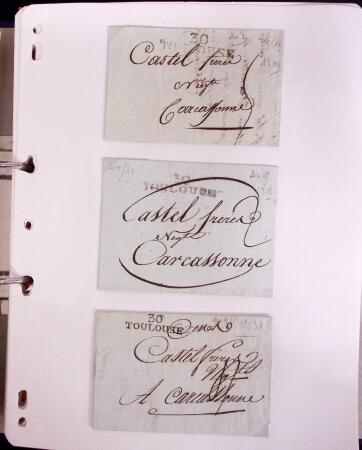 30
TOULOUSE
Castel frères
Negts
Carcassonne
30
TOULOUSE
Castel frères
Negts
Carcassonne
30
TOULOUSE
Castel frères
A Carcassonne